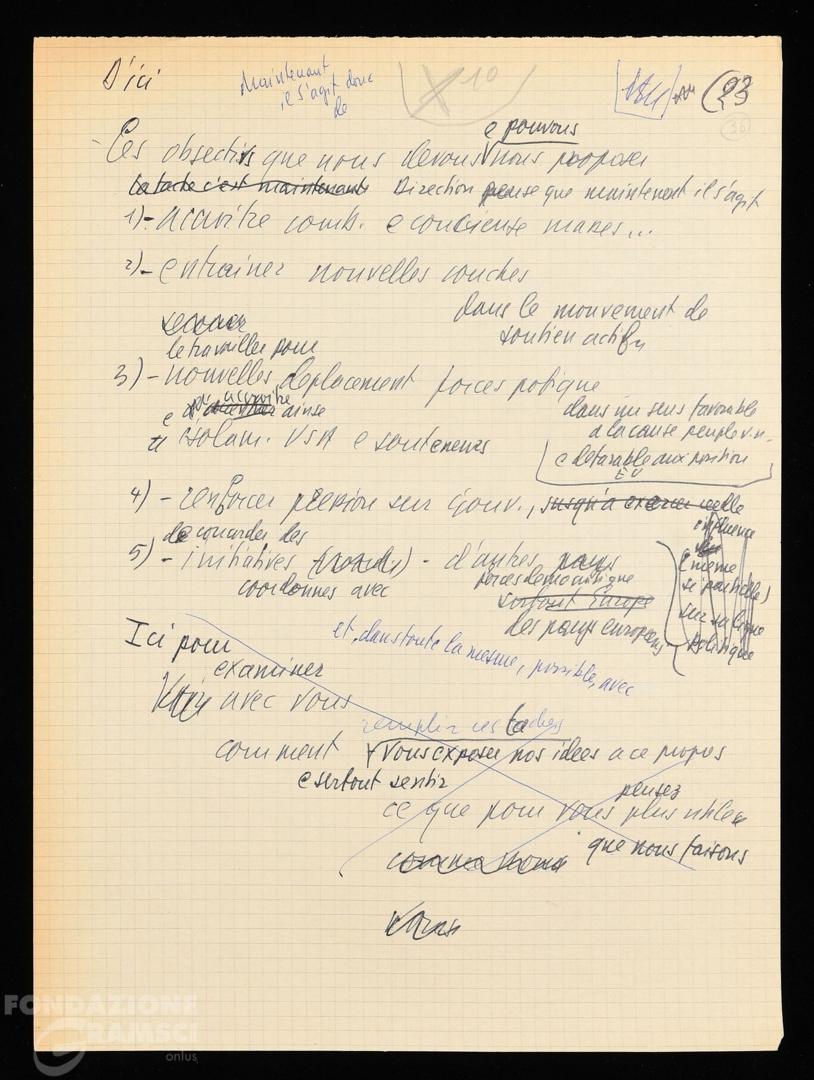 D'ici
Maintenant
il s'agit donc
de
X 10
(23
36
e pouvons
- Les objectifs que nous devons nous proposer
La tache c'est maintenant Direction pense que maintenant il s'agit
1) - accroitre comb. e conciense masses...
2) - entrainer nouvelles couches
dans le mouvement de
soutien actif
le travailler pour
3) - nouvelles deplacement forces potique
accroitre
e ainse
isolam. USA e souteneurs
dans un sens favorable
a la cause peuple v.n.
e defarable aux position
EU
4) - renforcer pression sur gouv., jusqu'a exercer telle
influence
(meme
se partielle)
sur sa ligne
politique
de conarder les
5) - initiatives - d'autres pays
coordonnes avec
forces democratique
surtout Europe
des pays europeens
et, dans toute la mesme, possible, avec
Ici pour
examiner
avec vous
remplir ces taches
comment Vous exposer nos idees a ce propos
e surtout sentir
pensez
ce que pour vous plus utile
comme nous que nous faisons
FONDAZIONE
GRAMSCI
onlus